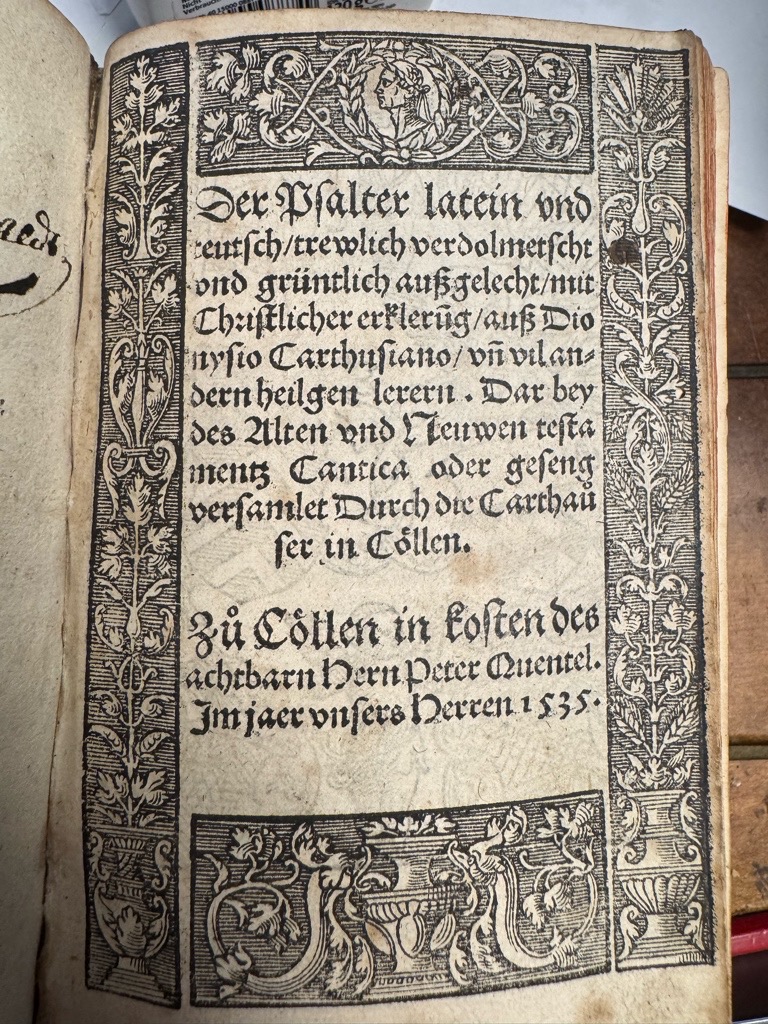 Der Psalter latein vnd
teutsch/trewlich verdolmetscht
vnd grüntlich außgelecht/mit
Christlicher erklerūg/auß Dio
nysio Carthusiano/ vñ vil an⸗
dern heilgen lerern. Dar bey
des Alten vnd Neuwen testa
mentz Cantica oder geseng
versamlet Durch die Carthaü
ser in Cöllen.
Zů Cöllen in kosten des
achtbarn Hern Peter Quentel.
Im jaer vnsers Herren 1535.